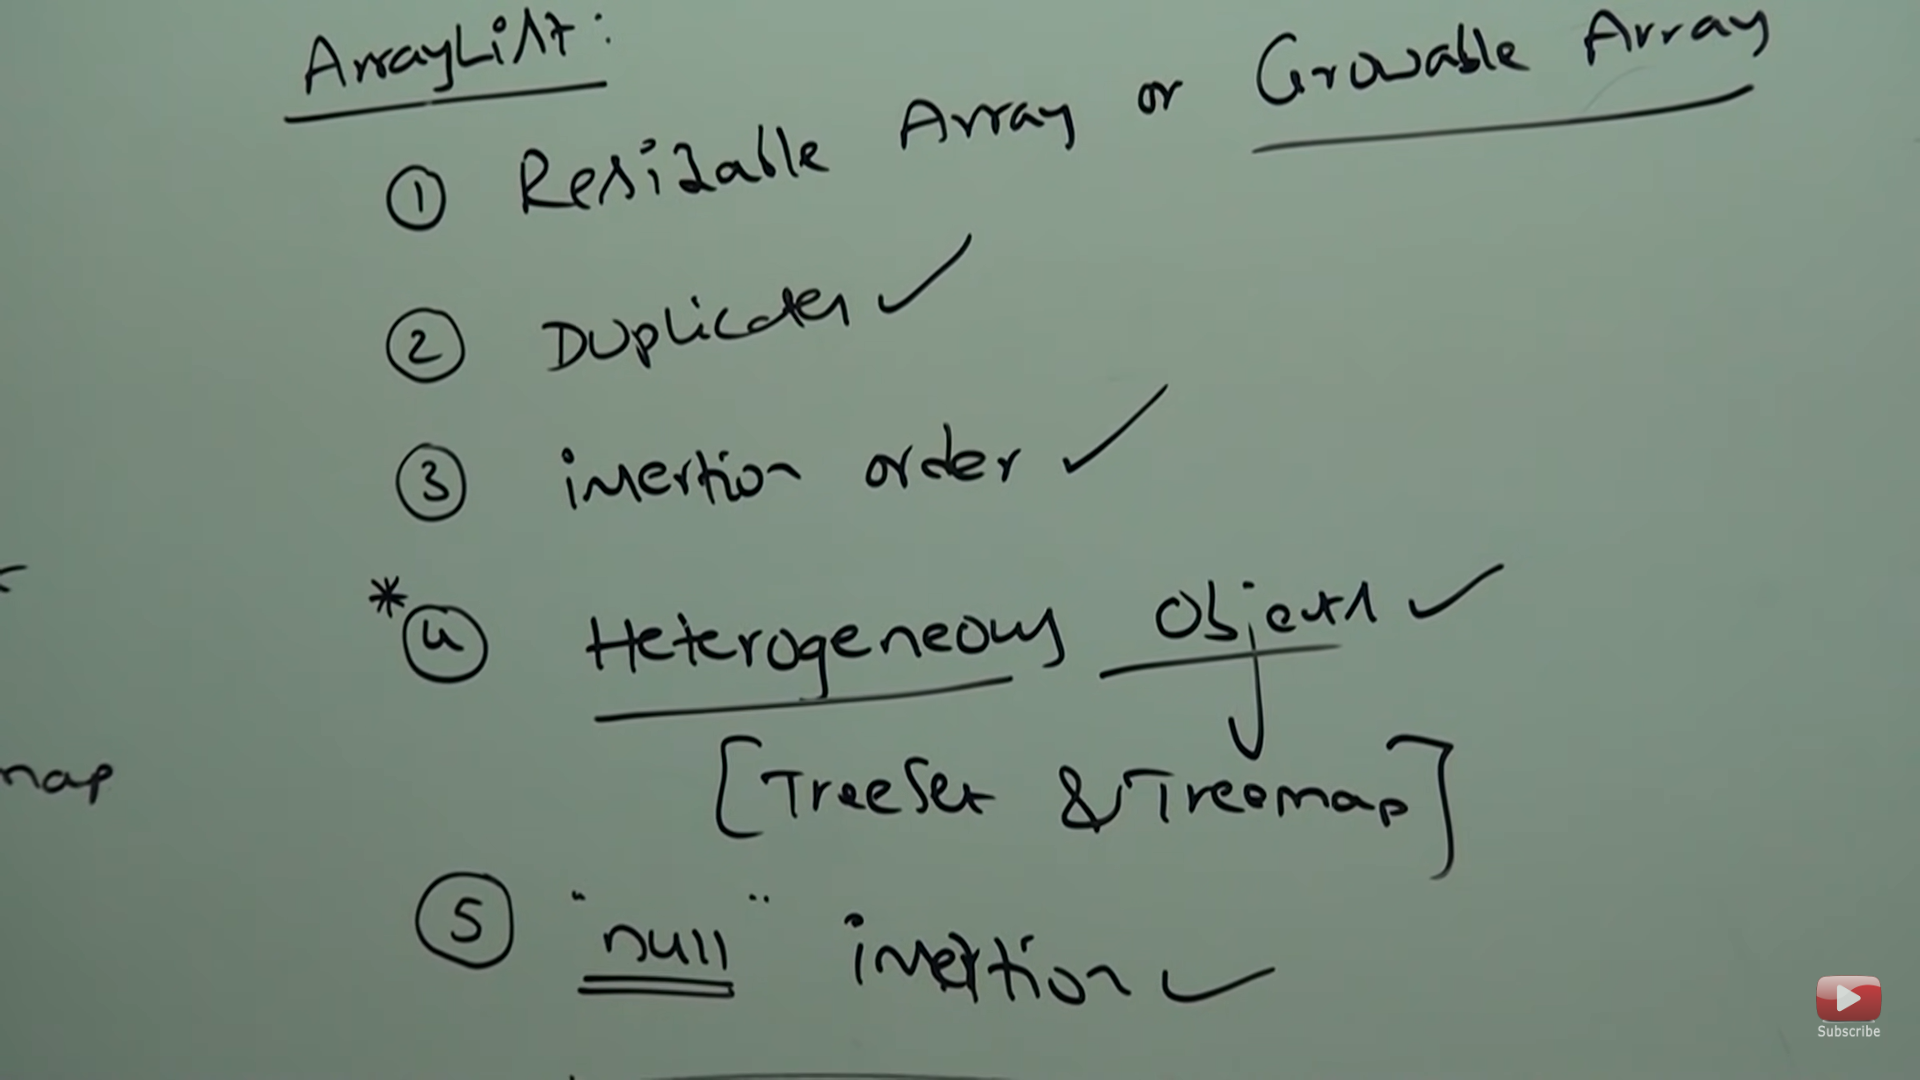 ArrayList:
① Resizable Array or Growable Array
② Duplicates ✓
③ insertion order ✓
* ④ Heterogeneous Objects ✓
[TreeSet & Treemap]
map
⑤ "null" insertion ✓
Subscribe